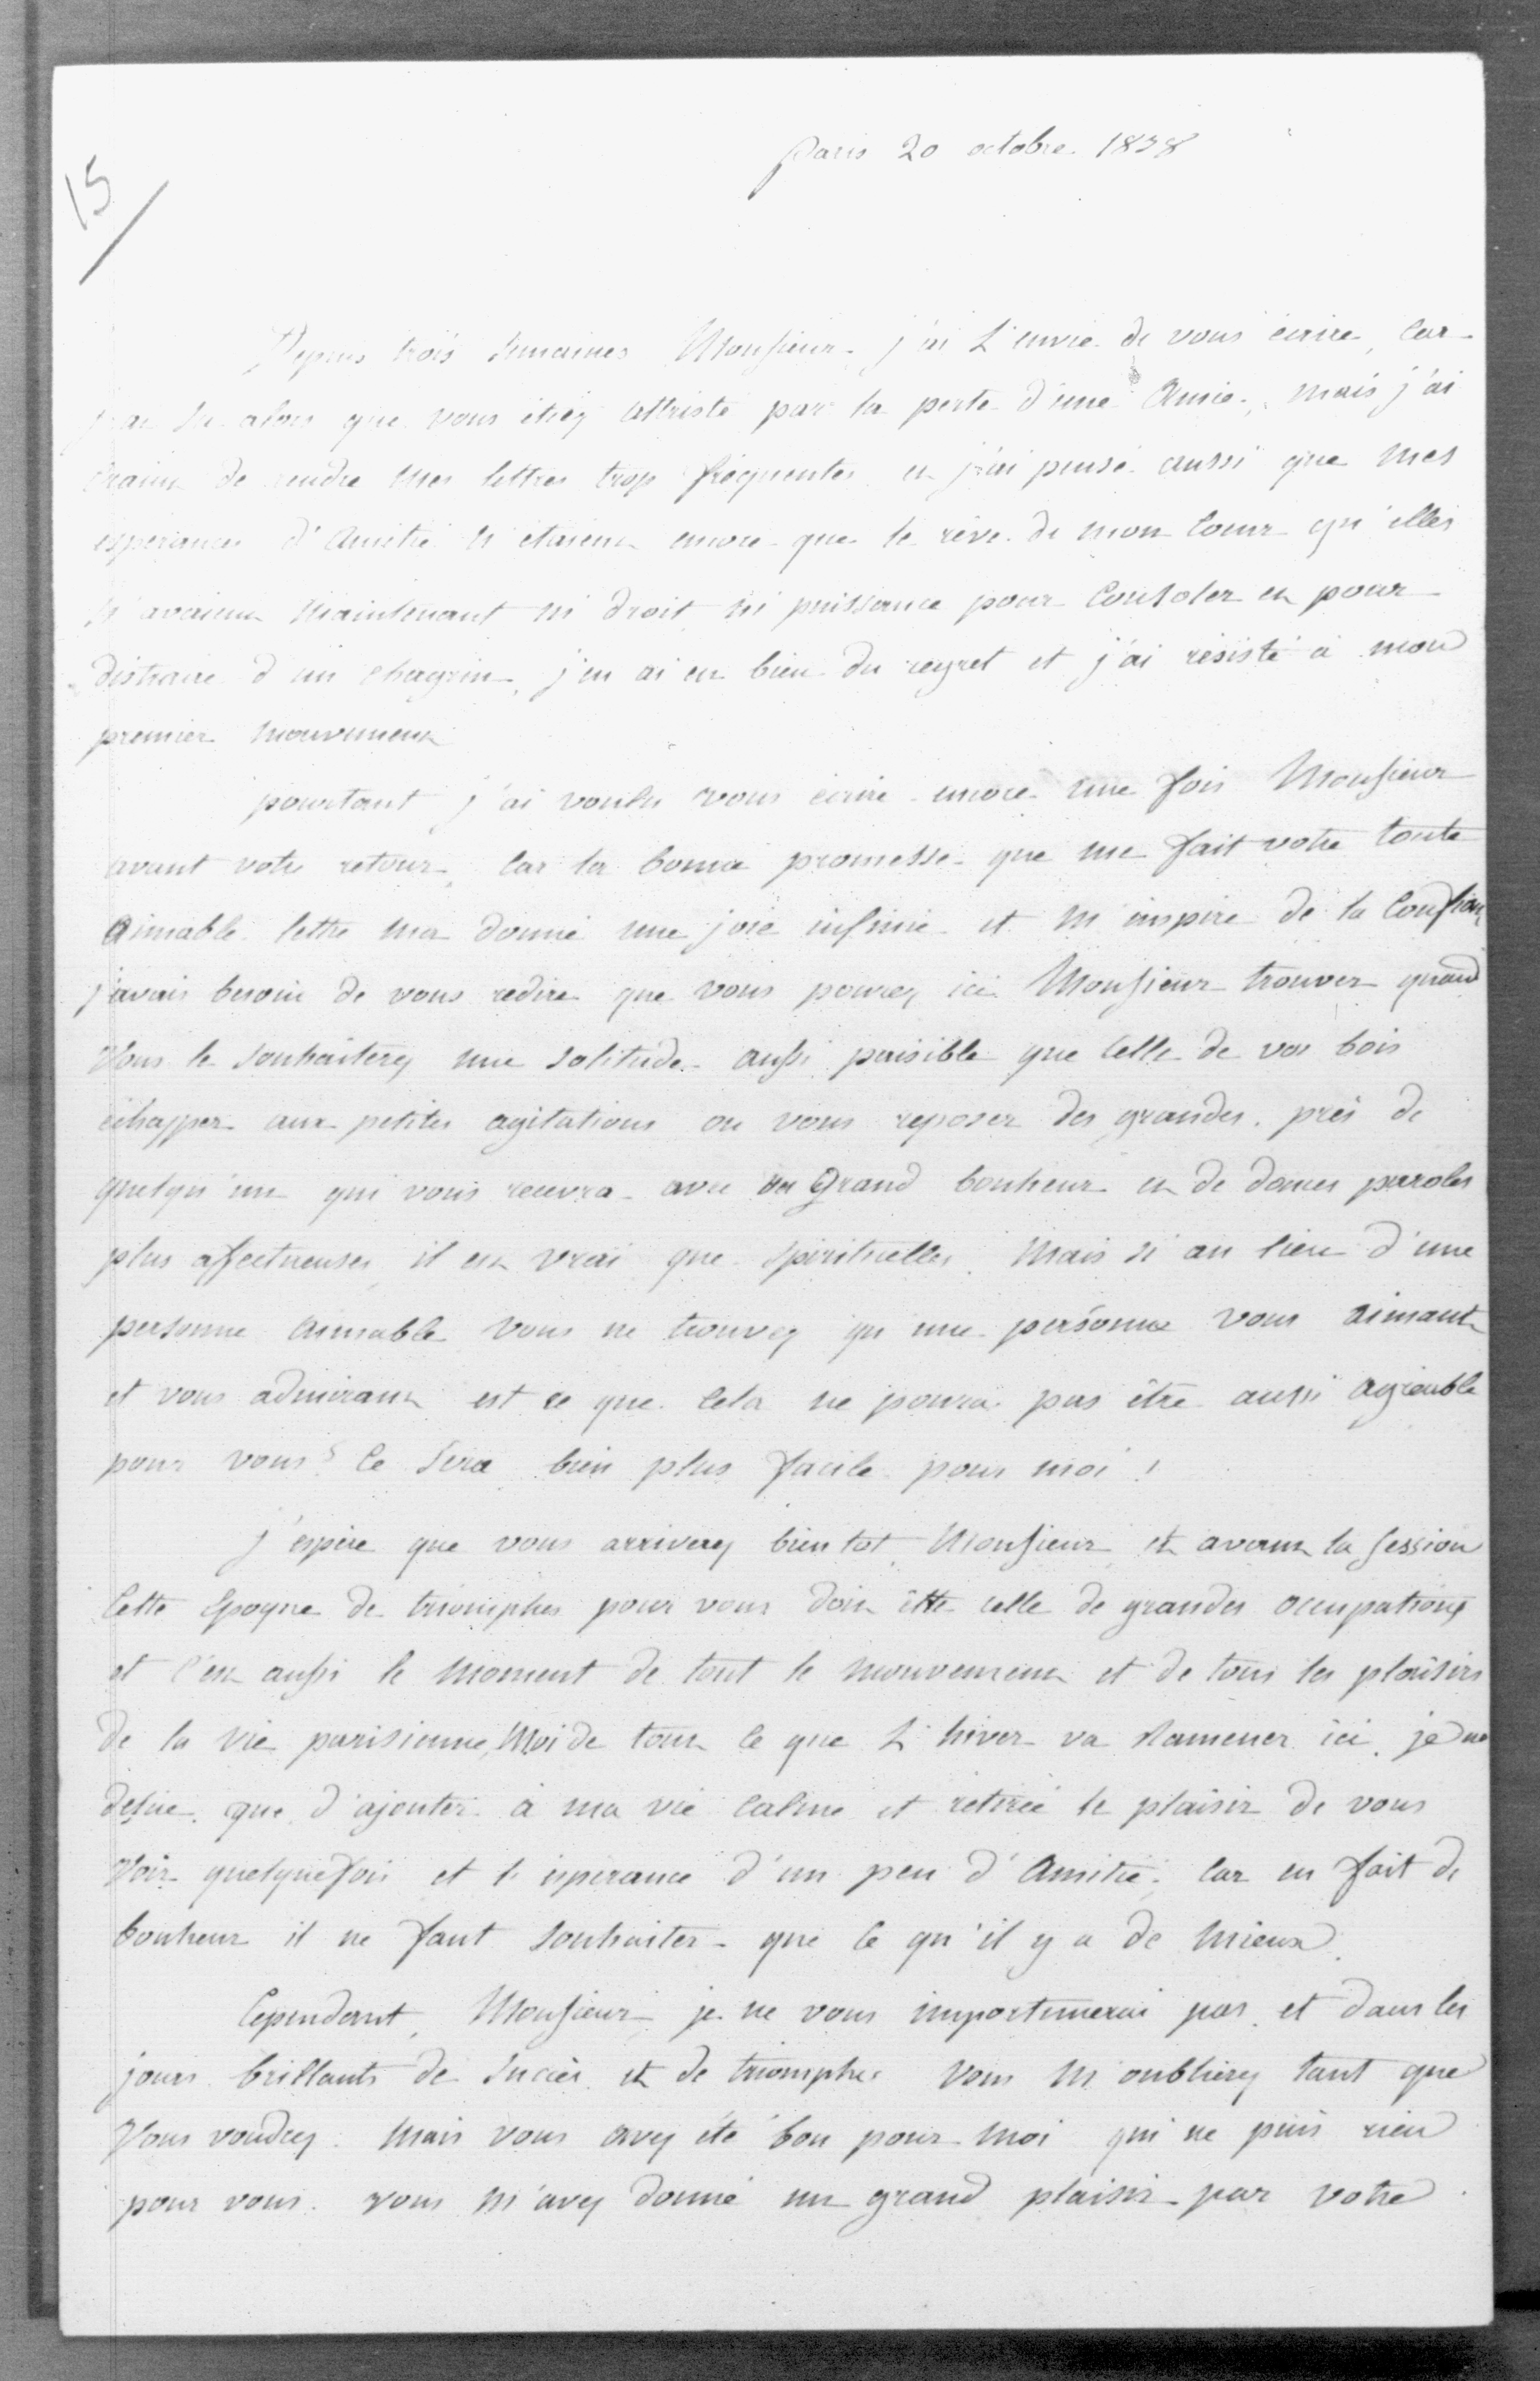 Paris 20 octobre 1838
15
Depuis trois semaines Monsieur, j'ai l'envie de vous écrire, car
j'ai su alors que vous étiez attristé par la perte d'une Amie, mais j'ai
craint de rendre mes lettres trop fréquentes et j'ai pensé aussi que mes
espérances d'Amitié n'étaient encore que le rêve de mon coeur qu'elles
n'avaient maintenant ni droit ni puissance pour consoler et pour
distraire d'un chagrin, j'en ai eu bien du regret et j'ai résisté à mon
premier mouvement
pourtant j'ai voulu vous écrire encore une fois Monsieur
avant votre retour, car la bonne promesse que me fait votre toute
aimable lettre m'a donné une joie infinie et m'inspire de la confiance
j'avais besoin de vous redire que vous pouvez ici Monsieur trouver quand
vous le souhaiterez une solitude aussi paisible que celle de vos bois
échapper aux petites agitations ou vous reposer des grandes, près de
quelqu'un qui vous recevra avec un grand bonheur et de douces paroles
plus affectueuses il est vrai que spirituelles. Mais si au lieu d'une
personne aimable vous ne trouvez qu'une personne vous aimant
et vous admirant est ce que cela ne poura pas être aussi agréable
pour vous? ce sera bien plus facile pour moi!
j'espère que vous arriverez bientot, Monsieur, et avant la session
cette époque de triomphes pour vous doit être celle de grandes occupations
et c'est aussi le moment de tout le mouvement et de tous les plaisirs
de la vie parisienne, Moi de tout ce que l'hiver va ramener ici, je ne
désire que d'ajouter à ma vie calme et retirée le plaisir de vous
voir quelquefois et l'espérance d'un peu d'Amitié; car en fait de
bonheur il ne faut souhaiter que ce qu'il y a de mieux.
Cependant, Monsieur, je ne vous importunerai pas, et dans les
jours brillants de succès et de triomphes vous m'oublierez tant que
vous voudrez. Mais vous avez été bon pour moi qui ne puis rien
pour vous. vous m'avez donné un grand plaisir par votre